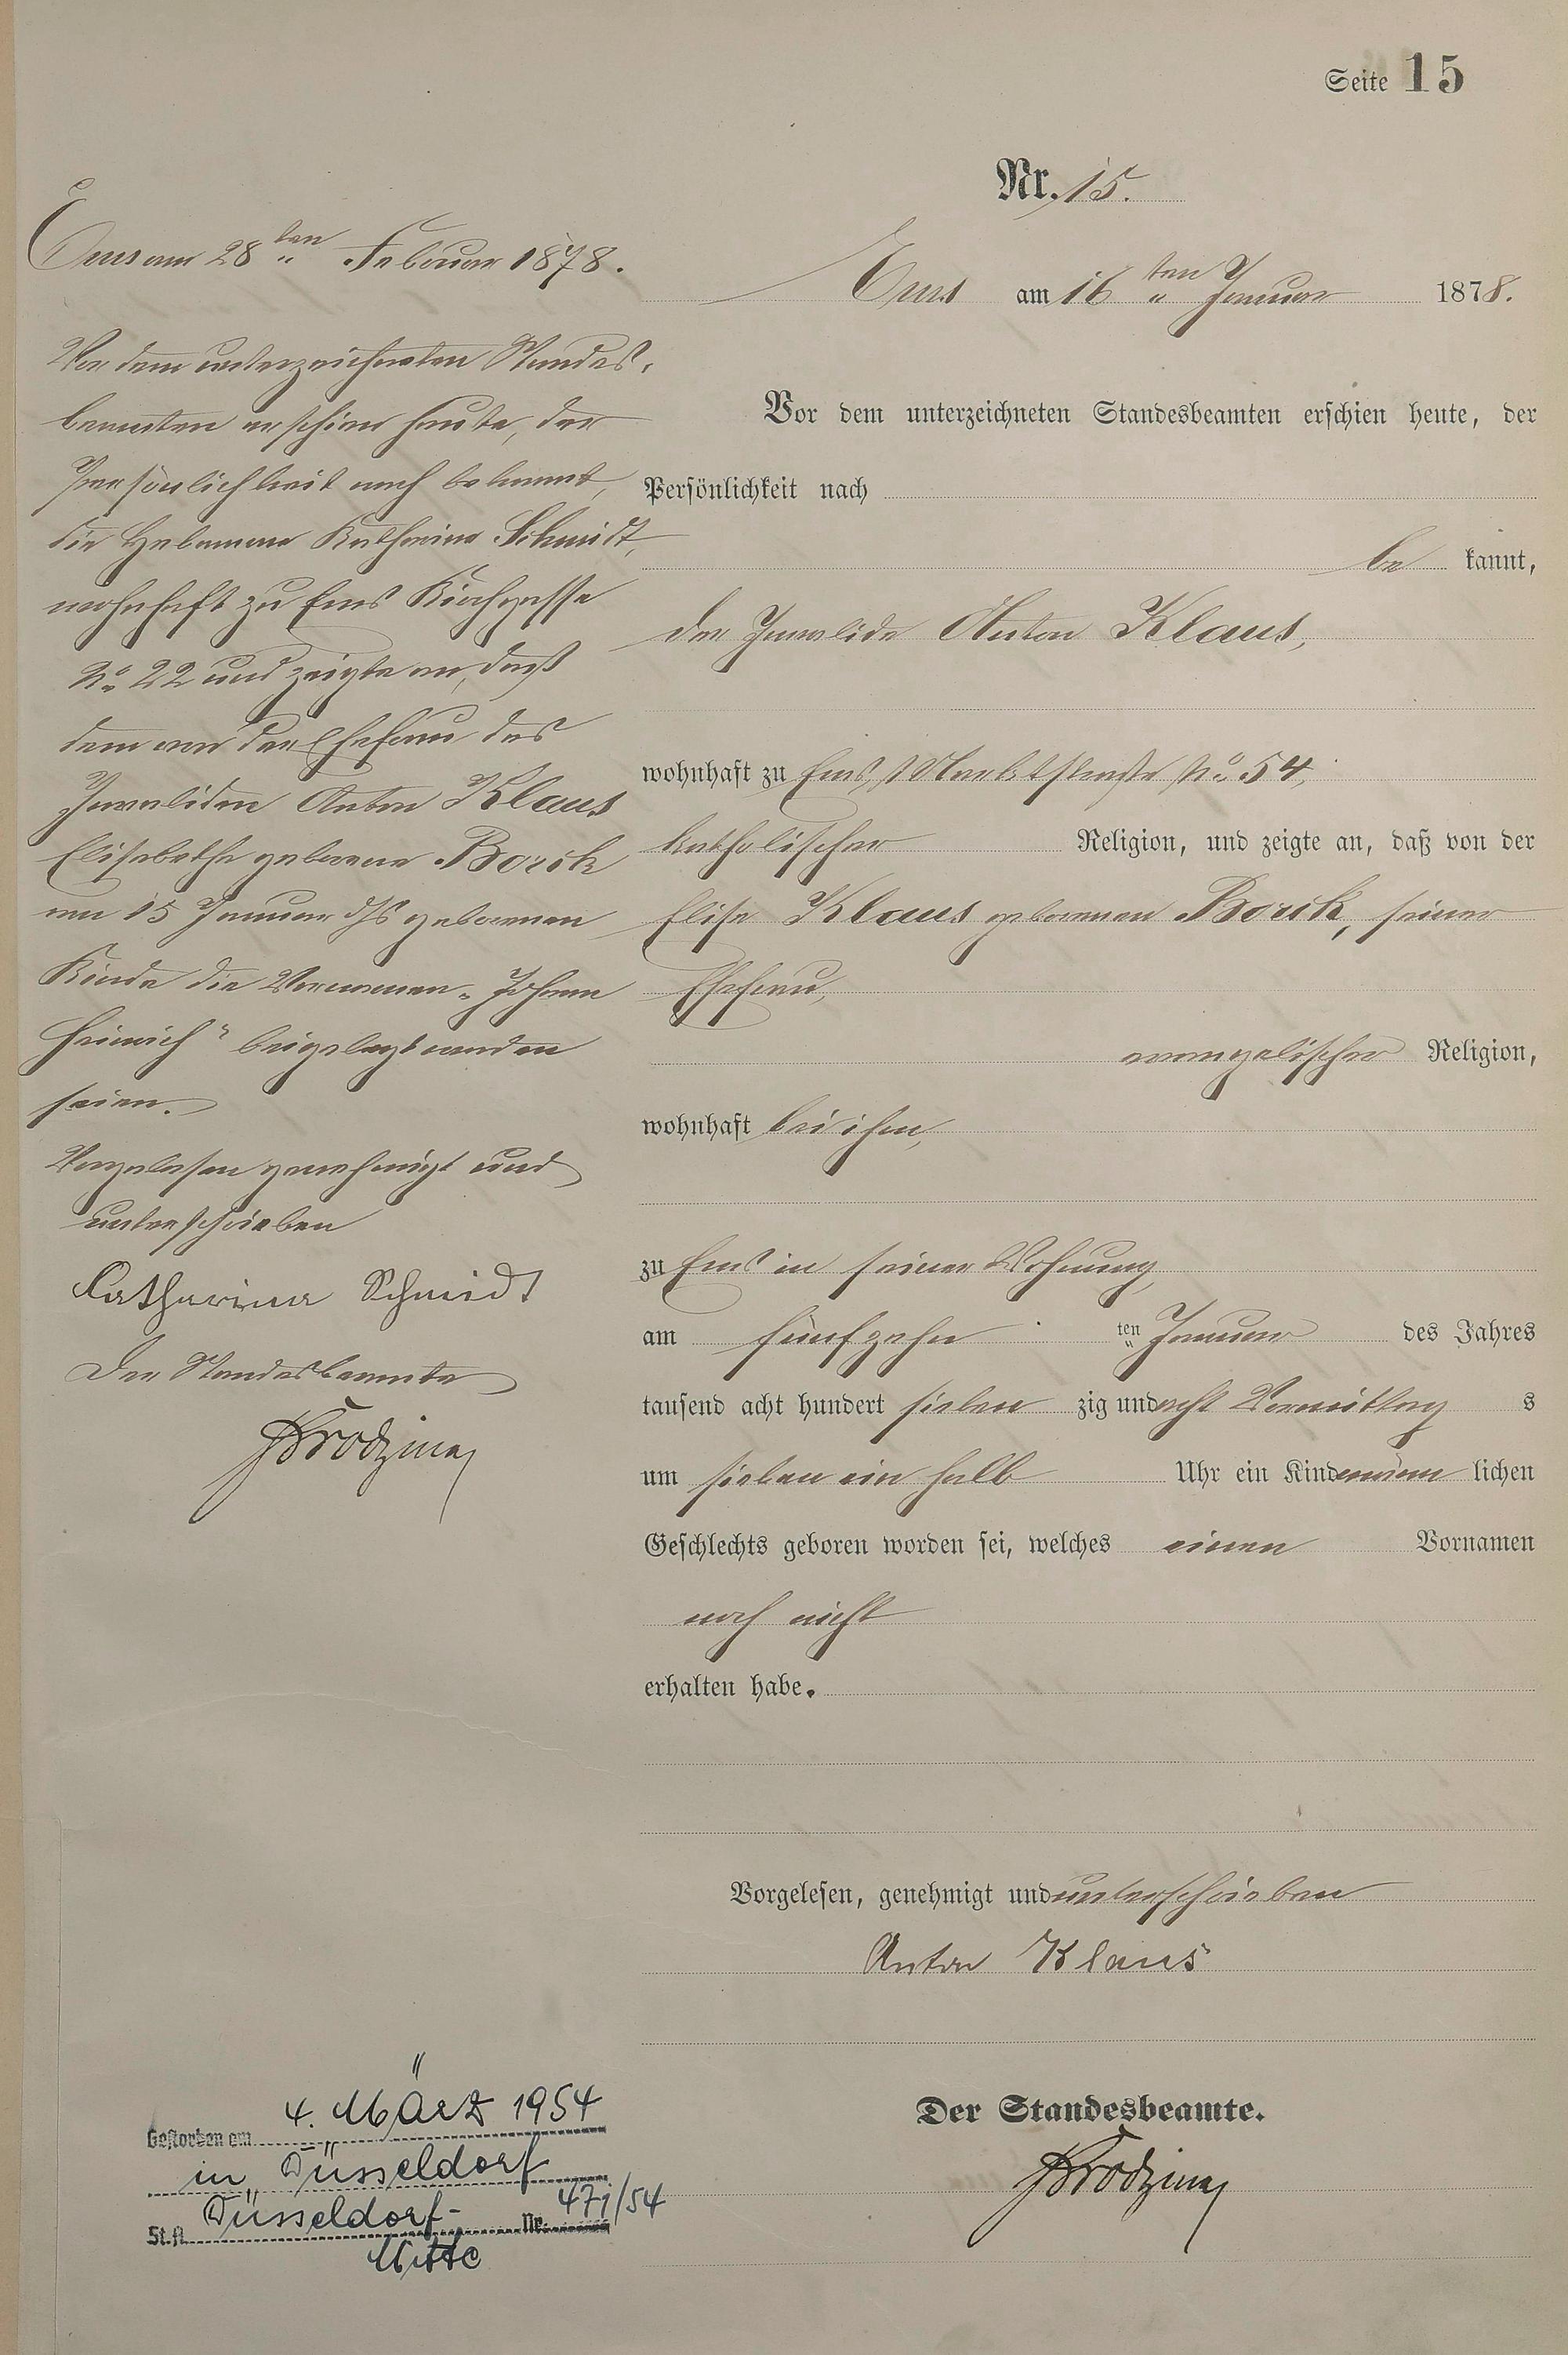 Seite 15
Nr. 15.
Ems am 16ten Januar 1878.
Vor dem unterzeichneten Standesbeamten erschien heute, der
Persönlichkeit nach
be kannt,
der Invalide Anton Klaus,
wohnhaft zu Ems, Marktstraße No 54,
katholischer Religion, und zeigte an, daß von der
Elise Klaus geborenen Borik, seiner
Ehefrau,
evangelischer Religion,
wohnhaft bei ihm,
zu Ems in seiner Wohnung,
am fünfzehn ten Januar des Jahres
tausend acht hundert sieben zig und acht Vormittag s
um sieben ein halb Uhr ein Kind männ lichen
Geschlechts geboren worden sei, welches einen Vornamen
noch nicht
erhalten habe.
Vorgelesen, genehmigt und unterschrieben
Anton Klaus
Der Standesbeamte.
Ems am 28ten Februar 1878.
Vor dem unterzeichneten Standes-
beamten erschien heute, der
Persönlichkeit nach bekannt,
die Hebamme Katharina Schmidt,
wohnhaft zu Ems Kirchgasse
No 22 und zeigte an, daß
dem von der Ehefrau des
Invaliden Anton Klaus
Elisabethe geborene Borik
am 15 Januar djs geborenen
Kinde die Vornamen „Johann
Heinrich" beigelegt worden
seien.
Vorgelesen genehmigt und
unterschrieben
Catharina Schmidt
Der Standesbeamte
Gestorben am 4. März 1954
in Düsseldorf
St.A. Düsseldorf- Nr. 471/54
Mitte